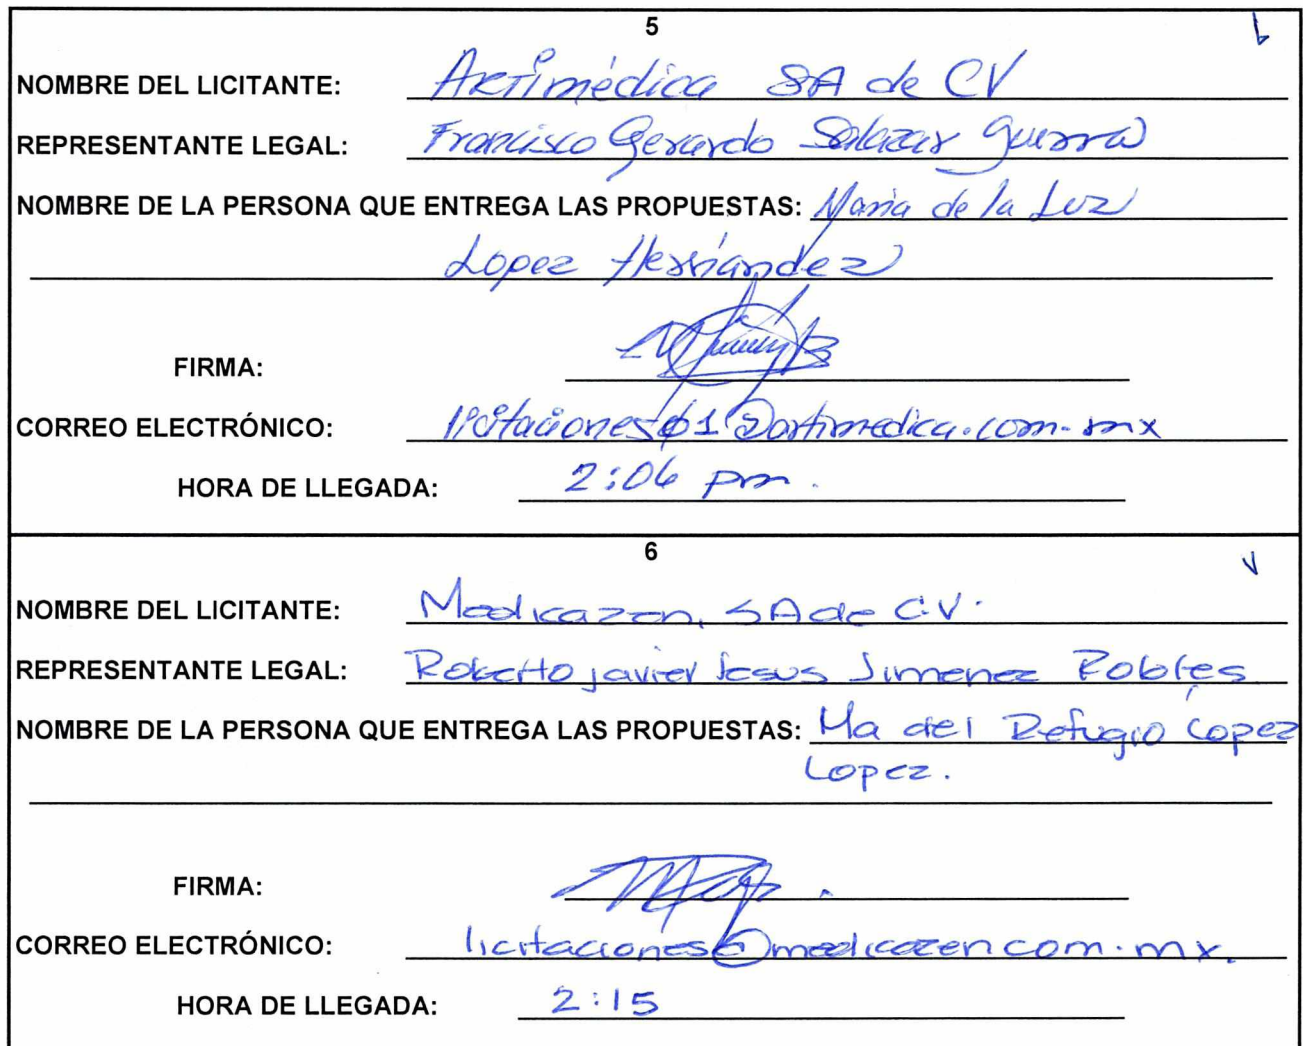 5
NOMBRE DEL LICITANTE: Artimédica SA de CV
REPRESENTANTE LEGAL: Francisco Gerardo Salazar Guerra
NOMBRE DE LA PERSONA QUE ENTREGA LAS PROPUESTAS: Maria de la Luz
Lopez Hernández
FIRMA:
CORREO ELECTRÓNICO: licitaciones01@artimedica.com.mx
HORA DE LLEGADA: 2:06 pm.
6
NOMBRE DEL LICITANTE: Medicazen, SA de C.V.
REPRESENTANTE LEGAL: Roberto javier Jesus Jimenez Robles
NOMBRE DE LA PERSONA QUE ENTREGA LAS PROPUESTAS: Ma del Refugio Lopez
Lopez.
FIRMA:
CORREO ELECTRÓNICO: licitaciones@medicazen com.mx.
HORA DE LLEGADA: 2:15